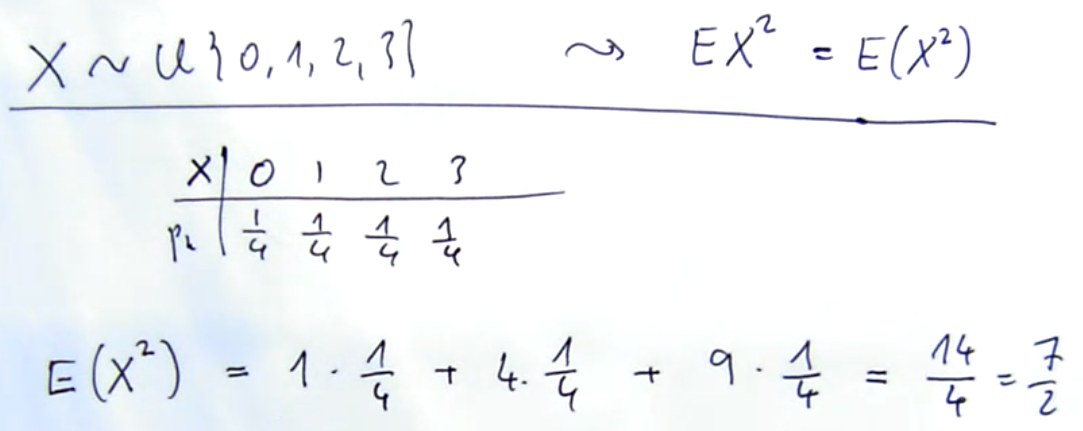 X ~ U{0, 1, 2, 3} ⇝ EX² = E(X²)
X | 0 1 2 3
pᵢ | 1/4 1/4 1/4 1/4
E(X²) = 1 · 1/4 + 4 · 1/4 + 9 · 1/4 = 14/4 = 7/2